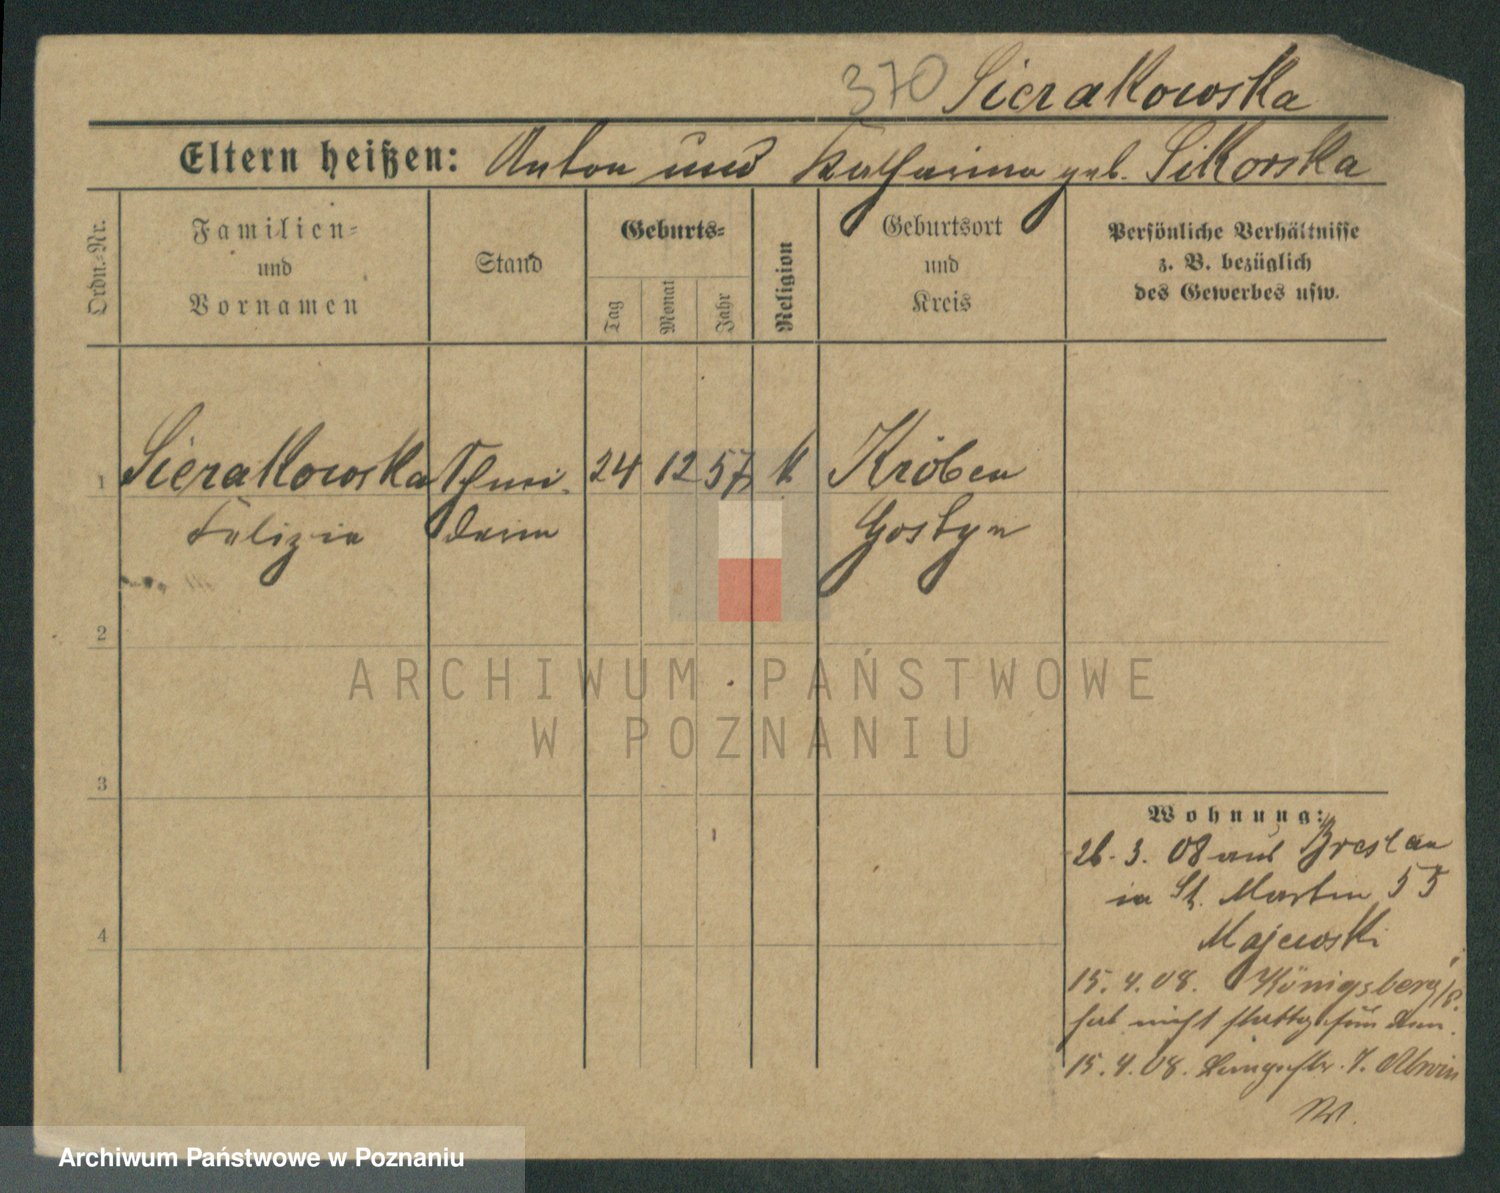 370 Sierakowska
Eltern heißen: Anton und Katharina geb. Sikorska
Ordn.-Nr.
Familien-
und
Vornamen
Stand
Geburts-
Tag
Monat
Jahr
Religion
Geburtsort
und
Kreis
Persönliche Verhältnisse
z. B. bezüglich
des Gewerbes usw.
1 Sierakowska Schnei- 24 12 57 k Kröben
Felizia derin Gostyn
2
3
4
Wohnung:
26. 3. 08 aus Breslau
in St. Martin 55
Majewski
15. 4. 08. Königsberg
hat nicht stattgefunden.
15. 4. 08. Langestr. 7.
ARCHIWUM PAŃSTWOWE
W POZNANIU
Archiwum Państwowe w Poznaniu